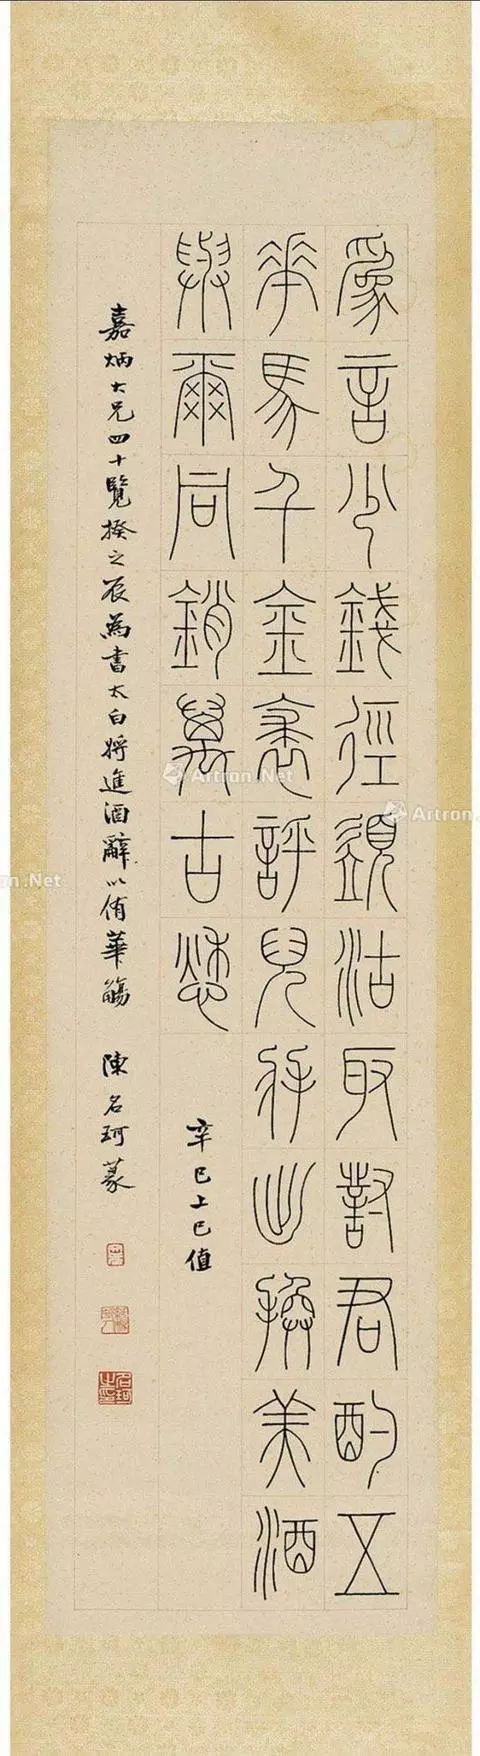 為言少錢徑須沽取對君酌五
花馬千金裘評兒將出換美酒
與爾同銷萬古愁
辛巳上巳值
嘉炳大兄四十覽揆之辰為書太白將進酒辭以侑華觴 陳名珂篆
Artron.Net
Artron.Net
Artron.Net